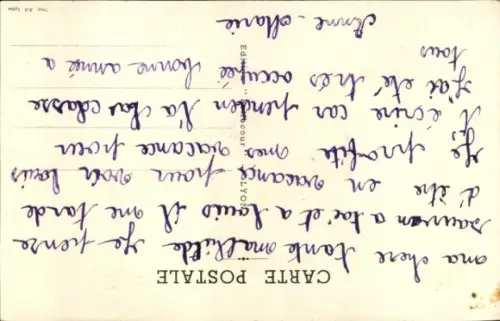 CARTE POSTALE
ma chere tante mathilde Je pense
souvan a toi et a louis il me tarde
d'être en vacance pour voir louis
Je profite mes vacance pour
t'écrire car penden la clas classe
J'ai eté trés occupée bonne année a
tous
Anne-Marie
LYON